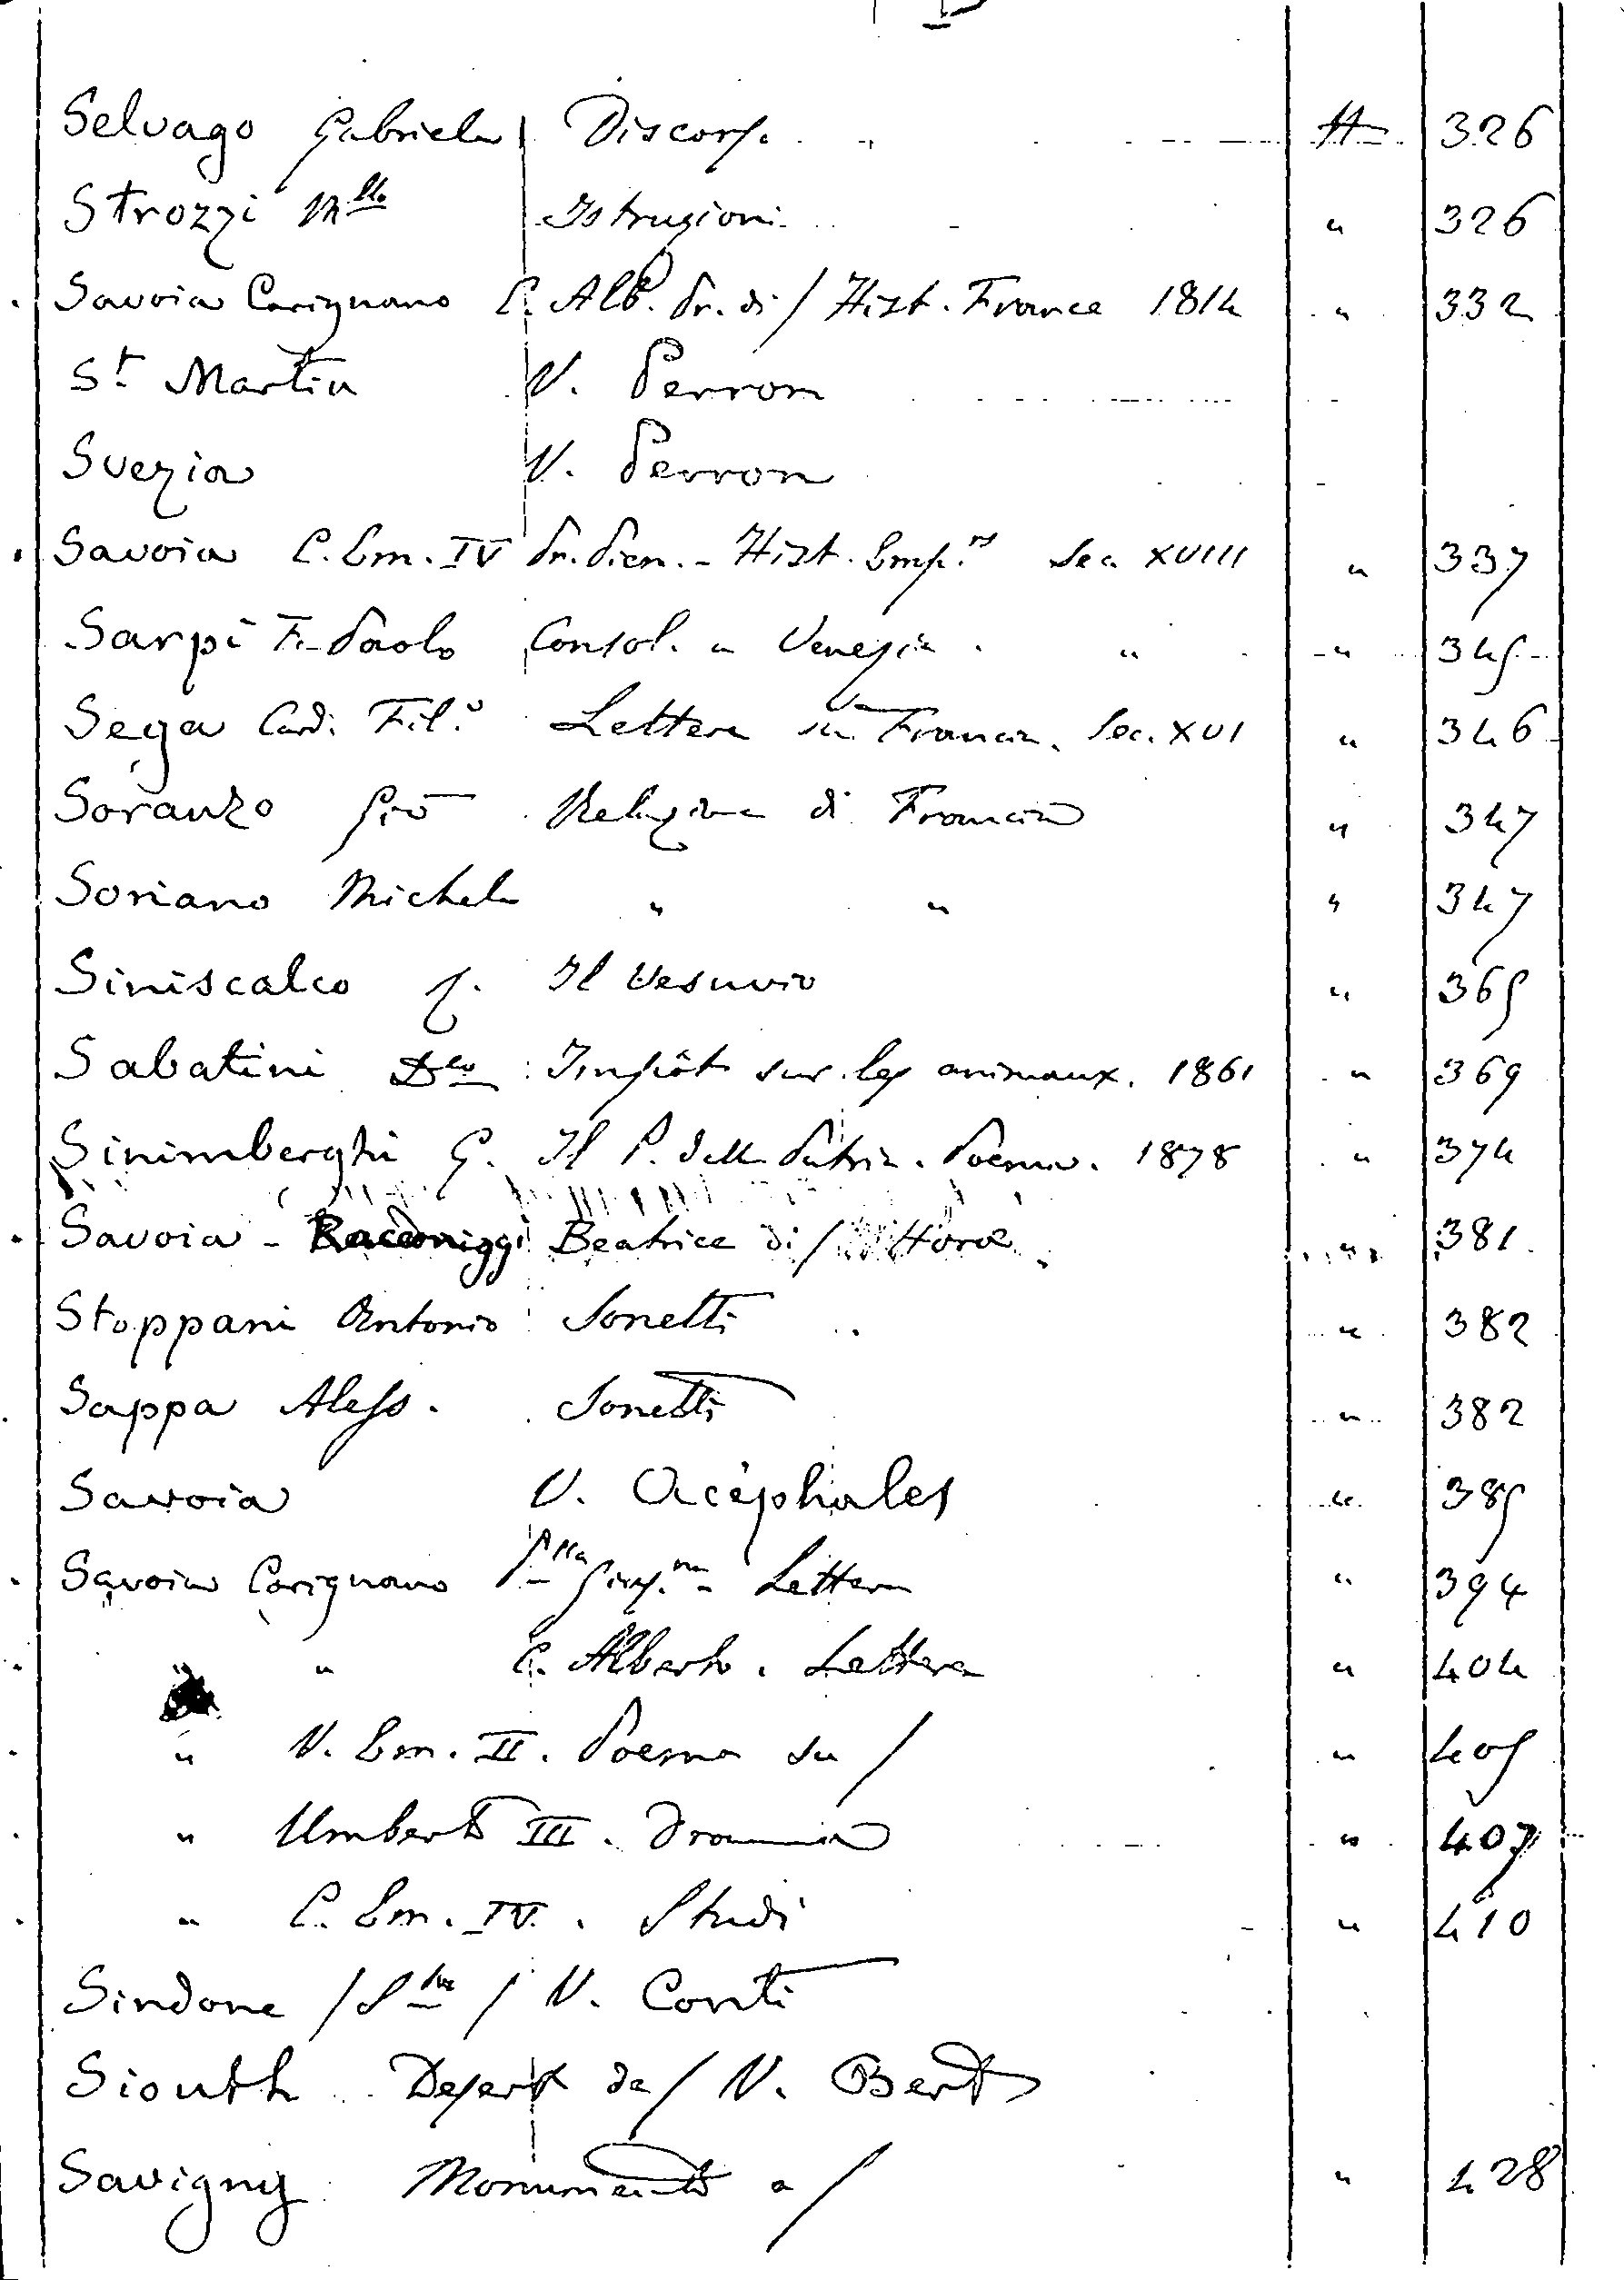 Selvago Gabriele Discorso " 326
Strozzi M.llo Istruzioni " 326
Savoia Carignano C. Alb. Pr. di / Hist. France 1814 " 332
St Martin V. Perron
Svezia V. Perron
Savoia C. Em. IV Pr. Piem. - Hist. Emp.rs Sec. XVIII " 337
Sarpi F. Paolo Consol. a Venezia " " 345
Sega Card. Fil.o Lettera su Francia. Sec. XVI " 346
Soranzo Gio Relazione di Francia " 347
Soriano Michele " " " 347
Siniscalco f. Il Vesuvio " 365
Sabatini D.co Impôt sur les animaux. 1861 " 369
Sinimberghi G. Il P. della Patria. Poema. 1878 " 374
Savoia - Racconiggi Beatrice di / Horæ " 381
Stoppani Antonio Sonetti " 382
Sappa Aless. Sonetti " 382
Savoia V. Acéphales " 385
Savoia Carignano P.ssa Gius.na - Lettera " 394
" " C. Alberto. Lettera " 404
" V. Em. II. Poema su / " 405
" Umberto III. Dramma " 407
" C. Em. IV. Studi " 410
Sindone / S.ta / V. Conti
Siouth Desert de / V. Bert
Savigny Monumento a / " 428